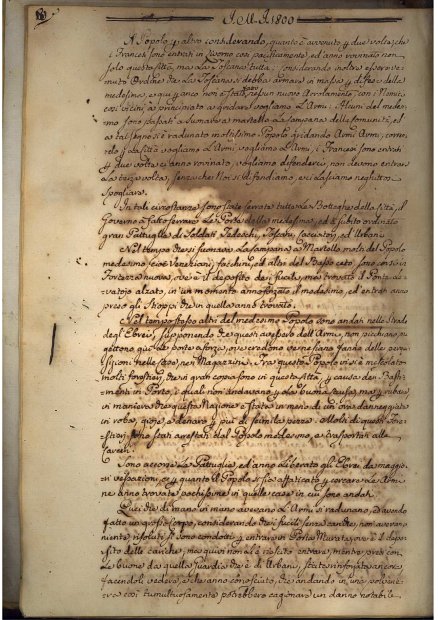 I. M. I. 1800
Il Popolo p. altro considerando, quanto è avvenuto p. due volte, che
i Francesi sono entrati in Livorno così pacificamente, ed anno rovinato non
solo questa Città, ma la Toscana tutta; considerando inoltre esser ve-
nuto Ordine che la Toscana si debba armare in massa p. difesa della
medesima, e qui p. anco non è stato, nessun nuovo Arrolamento con i Nemici
così vicini, à principiato a gridare vogliamo l'Armi: Alcuni del mede-
mo sono passati a sumare a martello la Campana della Comunità, ed
a tal segno si è radunato moltissimo Popolo gridando Armi Armi, corren-
do p. la Città vogliamo l'Armi, vogliamo l'Armi, i Francesi sono entrati
p. due volte ci anno rovinato, vogliamo difenderci, non devono entrare
la terza volta, senza che Noi ci difendiamo, e ci lasciamo neghittosi
spogliare.
In tali circostanze sono state serrate tutte le Botteghe della Città, il
Governo à fatto serrare le Porte della medesima, ed à subito ordinato
gran Pattuglie di Soldati Tedeschi, Toscani, Cacciatori, ed Urbani
Nel tempo che si suonava la Campana a Martello molti del Popolo
medesimo cioè Veneziani, facchini, ed altri del Basso ceto sono corsi in
Fortezza nuova, ove è il deposito de fucili, ma trovato il Ponte le-
vatojo alzato, in un momento anno sforzato il medesimo, ed entrati anno
preso gli Schioppi che in quella anno trovato.
Nel tempo stesso altri del medesimo Popolo sono andati nelle Strade
degli Ebrei, supponendo che questi avessero dell'Armi, non picchiano, e
mettono giù le porte a forza, ove credono venghino fatte delle oppo-
sizioni nelle case, nei Magazzini. Tra questo Popolo vi si è mescolato
molti forestieri, che in gran copia sono in questa Città p. causa dei Basti-
menti in Porto, i quali non andavano p. la buona causa, ma p. rubar,
in maniera che questa Nazione è stata in meno di un ora danneggiata
in roba, gioje, e denaro p. più di seimila pezze. Molti di questi Fore-
stieri sono stati arrestati dal Popolo medesimo, e trasportati alle
Carceri.
Sono accorse le Pattuglie, ed anno liberato gli Ebrei da maggio-
ri vessazioni, e p. quanto il Popolo si sia affaticato p. cercare le Armi
ne anno trovate pochissime in quelle case in cui sono andati.
Quei che di mano in mano avevano l'Armi si radunano, ed avendo
fatto un grosso corpo, considerando che i fucili senza cariche, non avevano
niente, risoluti si sono condotti p. entrare in Porta Murata, ove è il depo-
sito delle cariche, ma qui non li è riescito entrare, mentre presi con
le buone da quella Guardia che è di Urbani, stata rinforzata ancora
facendoli vedere, e che anno conosciuto, che andando in una polverie-
ra così tumultuosamente potrebbero cagionare un danno notabile,